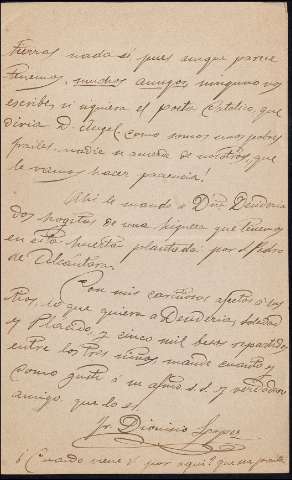 tierras nada sé pues aunque parece
tenemos muchos amigos, ninguno nos
escribe, ni siquiera el poeta Católico, que
diria D. Angel, como somos unos pobres
frailes nadie se acuerda de nosotros, que
le vamos hacer paciencia!
Ahi le mando a Dña Desideria
dos hogitas de una higuera que tenemos
en esta huerta plantada por S. Pedro
de Alcántara.
Con mis cariñosos afectos a los
tios, lo que quiera a Desideria, Soledad
y Placido, y cinco mil besos repartidos
entre los tres niños, mande cuanto y
como guste a su afmo s. s. y verdadero
amigo que lo es.
Fr. Dionisio
¿Cuando viene V. por aqui? que